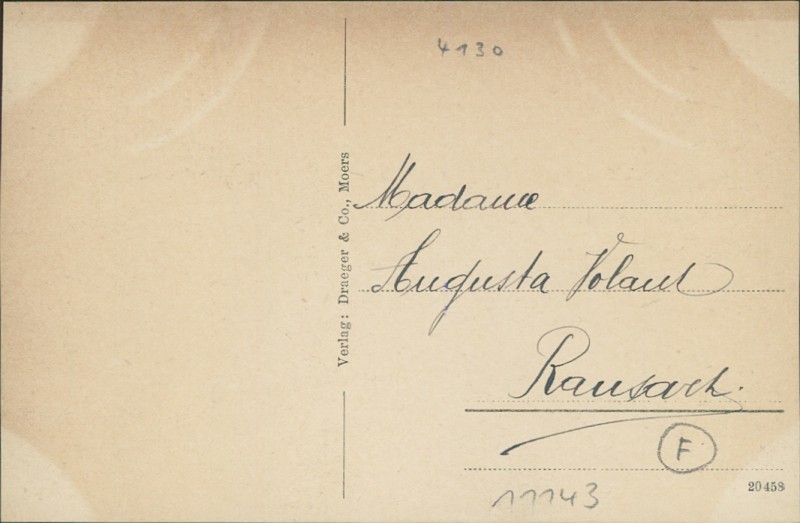 4130
Verlag: Draeger & Co., Moers
Madame
Augusta Volant
Ransart.
F
11143
20458